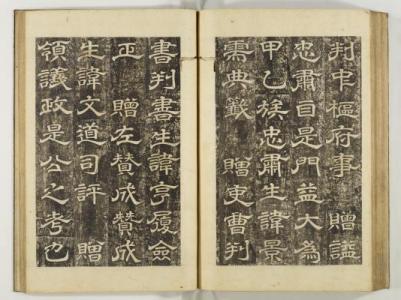 判中樞府事 贈謚
忠肅自是門益大為
甲乙族忠肅生諱景
需典籤 贈吏曹判
書判書生諱亨履僉
正 贈左贊成贊成
生諱文道司評 贈
領議政是公之考也